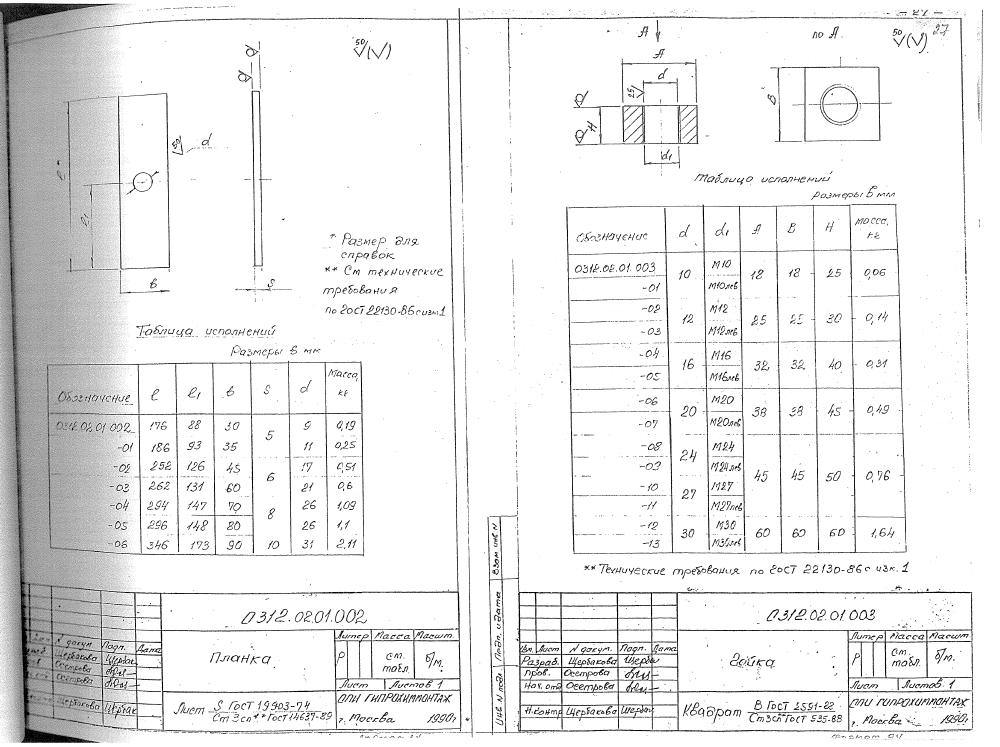 50 (√)
d
50
d
l*
l₁
в
S
* Размер для
справок
** См технические
требования
по ГОСТ 22130-86 с изм 1
Таблица исполнений
Размеры в мм
Обозначение l l₁ в S d Масса, кг
0312.02.01.002 176 88 30 5 9 0,19
-01 186 93 35 11 0,25
-02 252 126 45 6 17 0,51
-03 262 131 60 21 0,6
-04 294 147 70 8 26 1,09
-05 296 148 80 26 1,1
-06 346 173 90 10 31 2,11
0312.02.01.002
N докум. Подп. Дата
Щербакова Щербак
Осетрова
Осетрова
Щербакова Щербак
Планка
Литер Масса Масшт.
Р см. табл. б/м.
Лист Листов 1
Лист S ГОСТ 19903-74
Ст 3сп** ГОСТ 14637-89
ОПИ ГИПРОХИММОНТАЖ
г. Москва 1990г.
- 27 -
27
50 (√)
А
по А
А
d
25
Н
d₁
В
Таблица исполнений
Размеры в мм
Обозначение d d₁ А В Н масса, кг
0312.02.01.003 10 М10 18 18 25 0,06
-01 М10лев
-02 12 М12 25 25 30 0,14
-03 М12лев
-04 16 М16 32 32 40 0,31
-05 М16лев
-06 20 М20 38 38 45 0,49
-07 М20лев
-08 24 М24 45 45 50 0,76
-09 М24лев
-10 27 М27
-11 М27лев
-12 30 М30 60 60 60 1,64
-13 М30лев
** Технические требования по ГОСТ 22130-86 с изм. 1
Взам инв N
Подп. и дата
Инв. N подл.
0312.02.01.003
Изм. Лист N докум. Подп. Дата
Разраб. Щербакова Щербак
Пров. Осетрова
Нач. отд Осетрова
Н.контр Щербакова Щербак
Гайка
Литер Масса Масшт
Р см. табл. б/м.
Лист Листов 1
Квадрат В ГОСТ 2591-88
Ст 3сп ГОСТ 535-88
ОПИ ГИПРОХИММОНТАЖ
г. Москва 1990г.